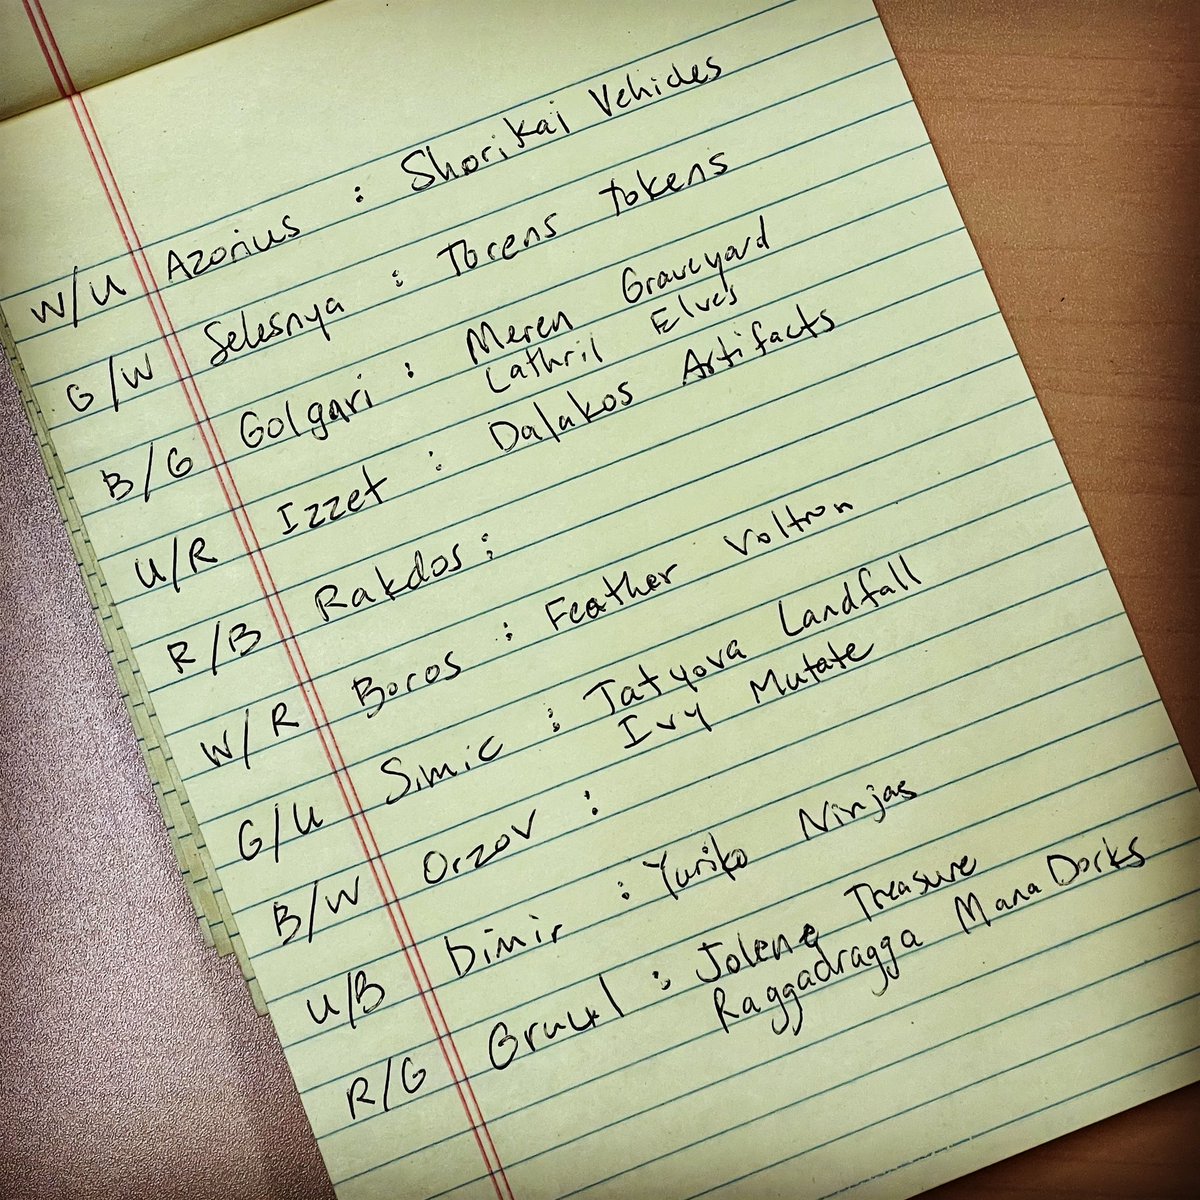 W/U Azorius : Shorikai Vehicles
G/W Selesnya : Torens tokens
B/G Golgari : Meren Graveyard
Lathril Elves
U/R Izzet : Dalakos Artifacts
R/B Rakdos :
W/R Boros : Feather Voltron
G/U Simic : Tatyova Landfall
Ivy Mutate
B/W Orzov :
U/B Dimir : Yuriko Ninjas
R/G Gruul : Jolene Treasure
Raggadragga Mana Dorks